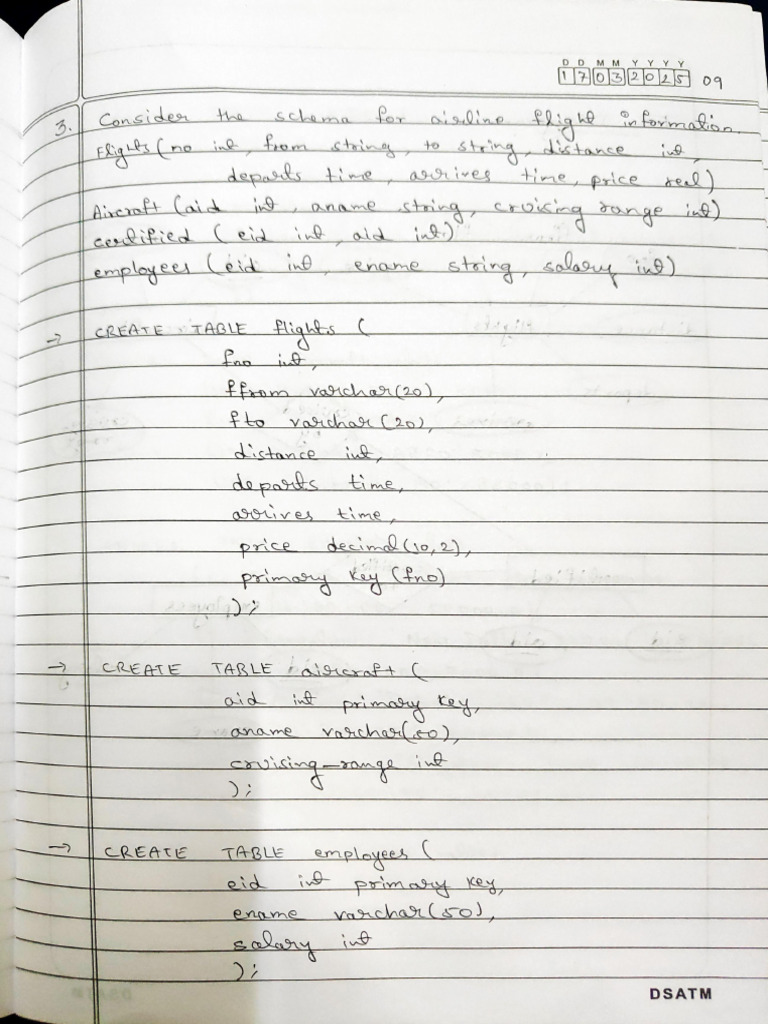 D D M M Y Y Y Y
17032025 09
3. Consider the schema for airline flight information.
Flights (no int, from string, to string, distance int,
departs time, arrives time, price real)
Aircraft (aid int, aname string, cruising range int)
certified (eid int, aid int)
employees (eid int, ename string, salary int)
→ CREATE TABLE flights (
fno int,
ffrom varchar(20),
fto varchar(20),
distance int,
departs time,
arrives time,
price decimal(10,2),
primary key (fno)
);
→ CREATE TABLE aircraft (
aid int primary key,
aname varchar(50),
cruising_range int
);
→ CREATE TABLE employees (
eid int primary key,
ename varchar(50),
salary int
);
DSATM